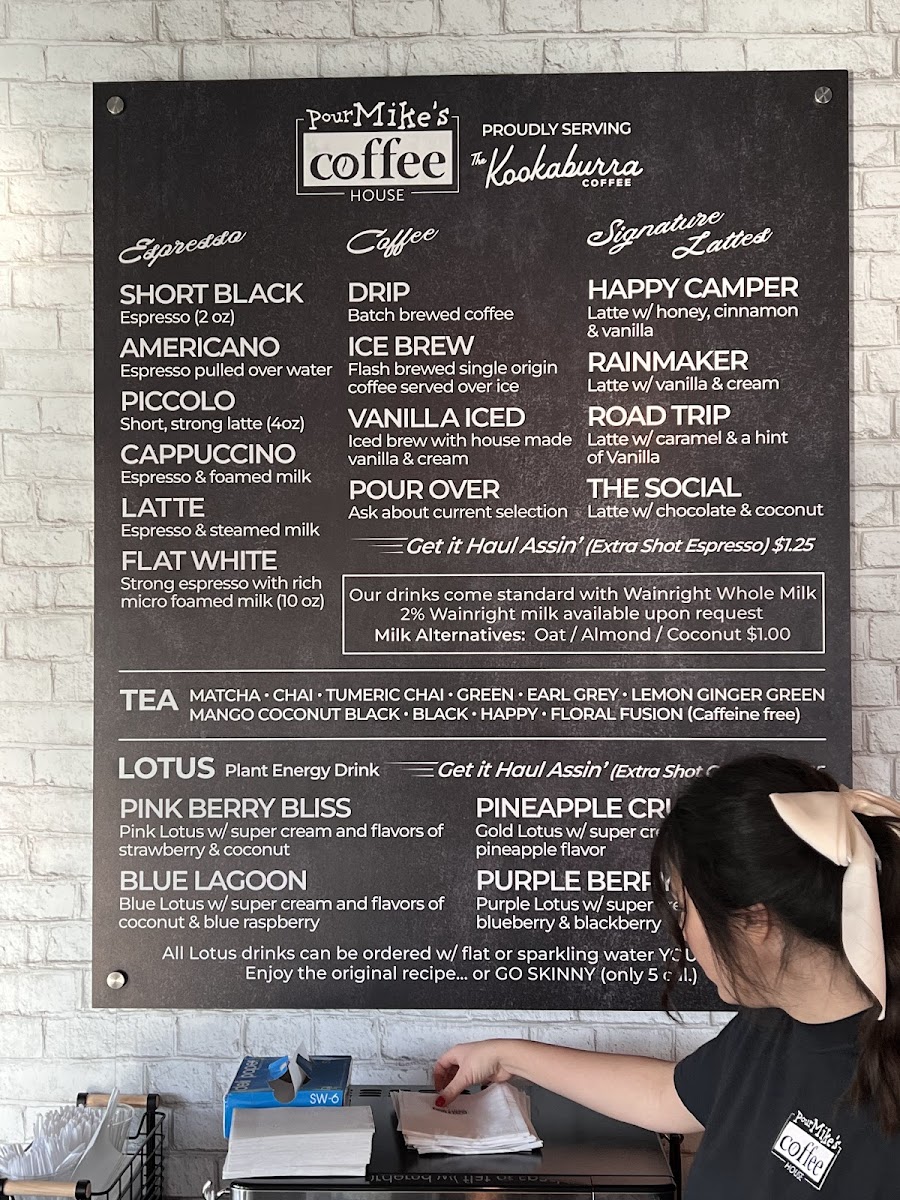 PourMike's
coffee
HOUSE
PROUDLY SERVING
The Kookaburra
COFFEE
Espresso
SHORT BLACK
Espresso (2 oz)
AMERICANO
Espresso pulled over water
PICCOLO
Short, strong latte (4oz)
CAPPUCCINO
Espresso & foamed milk
LATTE
Espresso & steamed milk
FLAT WHITE
Strong espresso with rich
micro foamed milk (10 oz)
Coffee
DRIP
Batch brewed coffee
ICE BREW
Flash brewed single origin
coffee served over ice
VANILLA ICED
Iced brew with house made
vanilla & cream
POUR OVER
Ask about current selection
Signature
Lattes
HAPPY CAMPER
Latte w/ honey, cinnamon
& vanilla
RAINMAKER
Latte w/ vanilla & cream
ROAD TRIP
Latte w/ caramel & a hint
of Vanilla
THE SOCIAL
Latte w/ chocolate & coconut
Get it Haul Assin' (Extra Shot Espresso) $1.25
Our drinks come standard with Wainright Whole Milk
2% Wainright milk available upon request
Milk Alternatives: Oat / Almond / Coconut $1.00
TEA MATCHA • CHAI • TUMERIC CHAI • GREEN • EARL GREY • LEMON GINGER GREEN
MANGO COCONUT BLACK • BLACK • HAPPY • FLORAL FUSION (Caffeine free)
LOTUS Plant Energy Drink Get it Haul Assin' (Extra Shot
PINK BERRY BLISS
Pink Lotus w/ super cream and flavors of
strawberry & coconut
BLUE LAGOON
Blue Lotus w/ super cream and flavors of
coconut & blue raspberry
PINEAPPLE
Gold Lotus w/ super
pineapple flavor
PURPLE
Purple Lotus w/ super
blueberry & blackberry
All Lotus drinks can be ordered w/ flat or sparkling water
Enjoy the original recipe... or GO SKINNY (only 5
SW-6
PourMike's
coffee
HOUSE